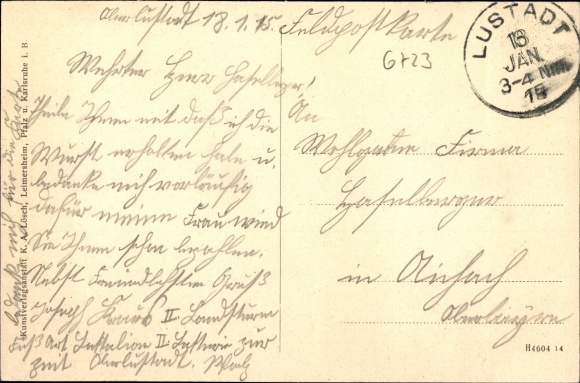 Oberlustadt 18.1.15.
Feldpostkarte
6723
LUSTADT
18
JAN.
3-4 Nm.
15
Wehrter Herr Haselberger!
Theile Ihnen mit daß ich die
Wurst erhalten habe u.
bedanke mich vorläufig
dafür meine Frau wird
Sie Ihnen schon bezahlen.
Nebst Freundlichsten Gruß
Joseph Kraus II. Landsturm
Fuß Art. Battalion II Batterie zur
zeit Oberlustadt. Pfalz
bedanke mich für die
An
Wohlgeborne Firma
Haselberger
in Aichach
Oberbayern
Kunstverlagsanstalt K. A. Lösch, Leimersheim, Pfalz u. Karlsruhe i. B.
H4604 14